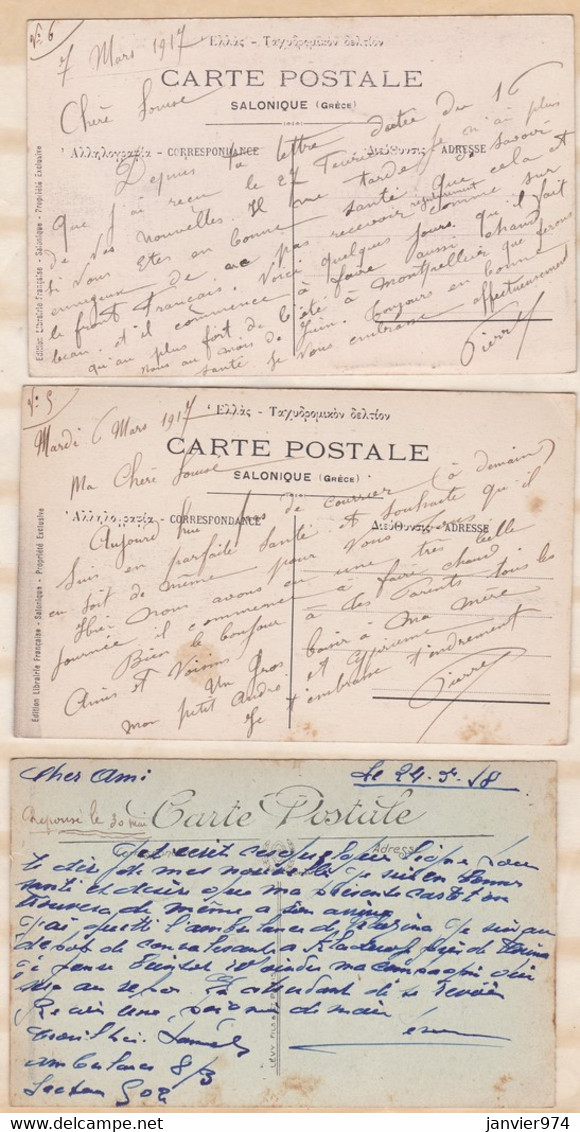 N: 6
7 Mars 1917
Ἑλλάς - Ταχυδρομικὸν δελτίον
CARTE POSTALE
SALONIQUE (GRÈCE)
Chère Louise
Ἀλληλογραφία - CORRESPONDANCE
Διεύθυνσις - ADRESSE
Edition Librairie Française - Salonique - Propriété Exclusive
Depuis ta lettre datée du 16
que j'ai reçu le 27 Fevrier je n'ai plus
de vos nouvelles. Il me tarde de savoir
si vous êtes en bonne santé que cela est
ennyeux de ne pas recevoir regulierement comme sur
le front Français. Voici quelques jours qu'il fait
beau. et il commence à faire aussi chaud
qu'au plus fort de l'été à Montpellier que ferons
nous au mois de Juin. toujours en bonne
santé Je vous embrasse affectueusement
Pierre
N: 5
Mardi 6 Mars 1917
Ἑλλάς - Ταχυδρομικὸν δελτίον
CARTE POSTALE
SALONIQUE (GRÈCE)
Ma Chère Louise
Ἀλληλογραφία - CORRESPONDANCE
Διεύθυνσις - ADRESSE
Edition Librairie Française - Salonique - Propriété Exclusive
Aujourd'hui pas de courrier (à demain)
Suis en parfaite santé et souhaite qu'il
en soit de même pour vous tous
Hier nous avons eu une très belle
journée il commence à faire chaud
Bien le bonjour à des Parents tous les
Amis et Voisins
Un Gros baisir à Ma mère
mon petit André et
Je t'embrasse tendrement
Pierre
Cher Ami
Le 24.5.18
Reponse le 30 Mai
Carte Postale
Adresse
Je t'ecrit ligne pour
te dire de mes nouvelle Je suit en bonne
santé et desire que ma presente carte
trouvera de même a son arivée
J'ai quetté l'ambulance de Je suis au
depot de près de
Je pense rejoindre ma compagnie qui
au repos En attendant de se revoir
Recoie une poigne de main
LEVY FILS
ambulance 8/3
Secteur 502